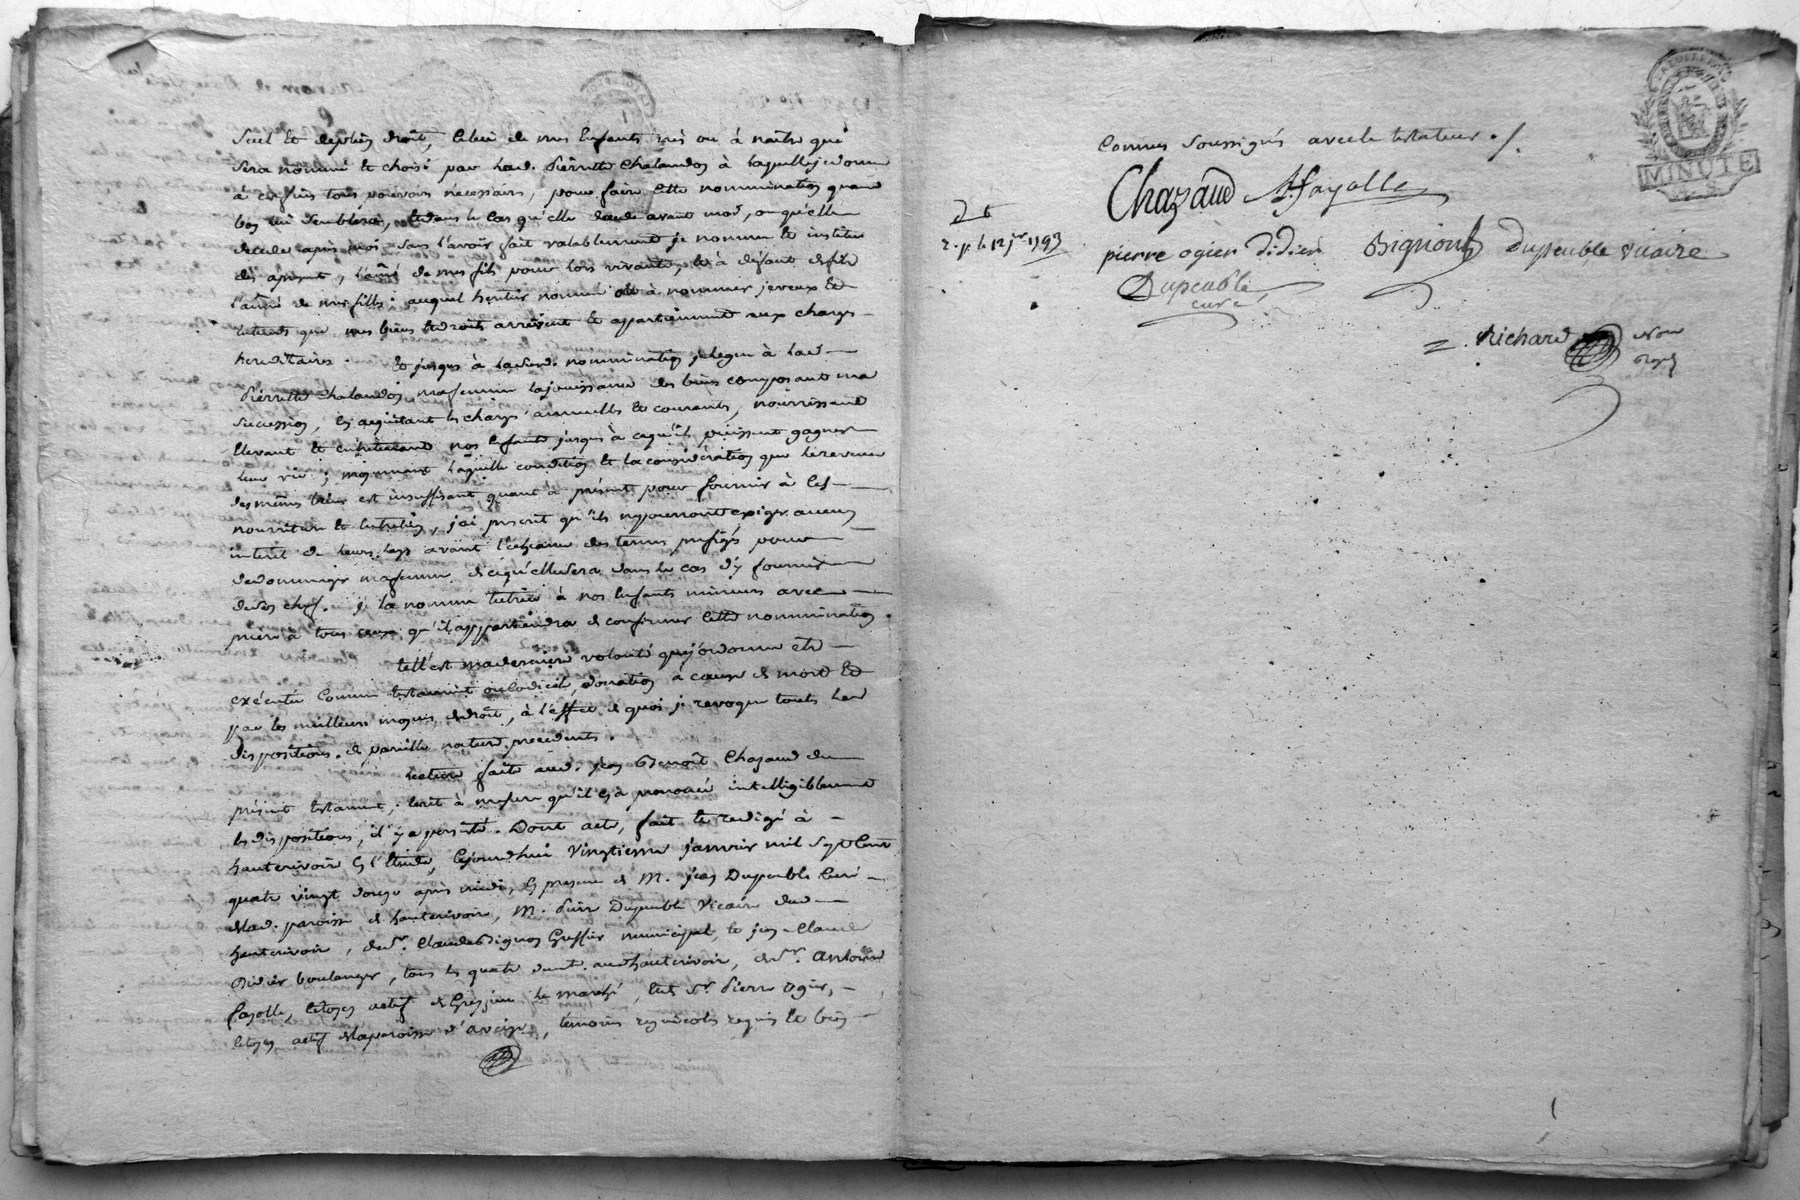 Seul et de plein droit, celui de mes Enfants nés ou à naitre qui
Sera nommé et choisi par lad. Pierrette Chalandos à laquelle je donne
à ces fins tous pouvoirs nécessaires, pour faire cette nomination quand
bon lui semblera, et dans le Cas qu'elle decede avant moi, ou qu'elle
decede après moi sans l'avoir fait valablement je nomme et institue
dès aprésent, l'ainé de mes fils pour lors vivants, et à defaut de fils
l'ainée de mes filles; auquel heritier nommé ou à nommer je veux et
entends que mes biens et droits arrivent et appartiennent aux charges
hereditaires. Et jusques à lad. nomination je legue à lad.
Pierrette Chalandos ma femme la jouissance des biens composant ma
succession, en acquittant les charges annuelles et courantes, nourrissant
Elevant et entretenant nos Enfants jusques à ce qu'ils puissent gagner
leur vie; moyennant laquelle condition et la consideration que le revenu
des mêmes biens est insuffisant quant à présent pour fournir à les
nourriture et entretien, j'ai prescrit qu'ils ne pourront exiger aucun
interet de leurs legs avant l'échéance des termes prefigés pour
dedommager ma femme de ce qu'elle sera dans le cas d'y fournir
de son chef. Je la nomme tutrice à nos Enfants mineurs avec
priere à tous ceux qu'il appartiendra de confirmer cette nomination.
tell'est ma derniere volonté que j'ordonne etre
exécutée Comme testament ou Codicile, donation à cause de mort et
par les meilleurs moyens de droit, à l'effet de quoi je revoque toutes
dispositions de pareille nature precedents.
lecture faite aud. jean Benoît Chazaud du
présent testament, Ecrit à mesure qu'il en a prononcé intelligiblement
les dispositions, il y a persisté. Dont acte, fait et redigé à
hauterivoire En l'Etude, Cejourdhui vingtieme janvier mil Sept Cent
quatre vingt douze après midi, En presence de M. jean Dupeuble Curé
de lad. paroisse de hauterivoire, M. Pierre Dupeuble Vicaire dud.
hauterivoire, de sr. Claude Bignon Greffier municipal, et jean-Claude
Didier boulanger, tous les quatre dem.t aud. hauterivoire, de sr. Antoine
fayolle, Citoyen actif de Grezieu le marché, Et de Sr Pierre Ogier,
Citoyen actif de la paroisse d'aveize, témoins regnicoles requis et bien
Connus Soussignés avec le testateur ./.
Chazaud A fayolle
r. p. le 12 jer 1793
pierre ogier didier Bignon Dupeuble vicaire
Dupeuble
curé
Richard Nore
royl
MINUTE